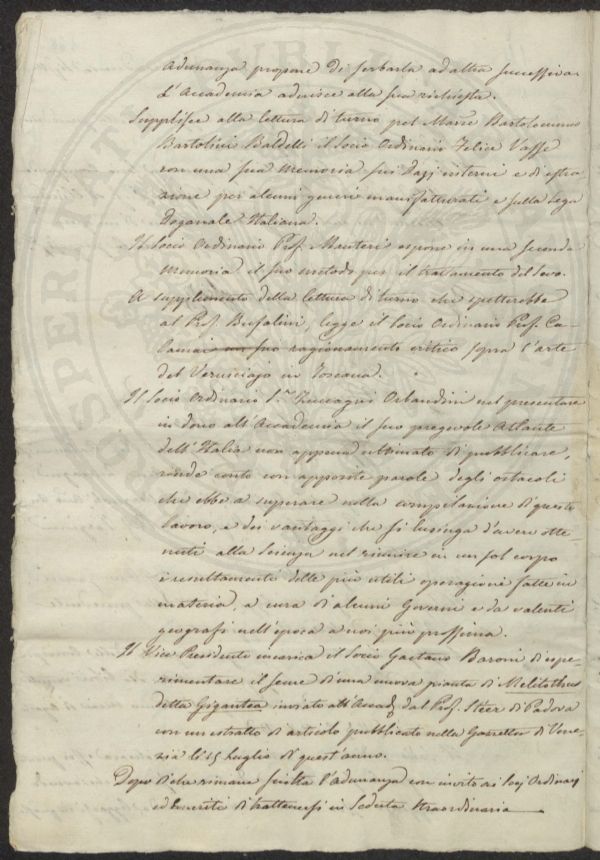 Adunanza propone di serbarla ad altra successiva.
L'Accademia aderisce alla sua richiesta.
Supplisce alla lettura di turno pel March. Bartolommeo
Bartolini Baldelli il Socio Ordinario Felice Vasse
con una sua memoria sui Dazj interni e di estra-
zione per alcuni generi manifatturati e sulla Lega
Doganale Italiana.
Il Socio Ordinario Prof. Manteri espone in una seconda
memoria il suo metodo per il trattamento del Sevo.
A supplimento della lettura di turno che spetterebbe
al Prof. Bufalini, legge il Socio Ordinario Prof. Ca-
lamai un suo ragionamento critico sopra l'arte
del Verniciajo in Toscana.
Il Socio Ordinario S.r Zuccagni Orlandini nel presentare
in dono all'Accademia il suo pregevole Atlante
dell'Italia non appena ultimato di pubblicare,
rende conto con apposite parole degli ostacoli
che ebbe a superare nella compilazione di questo
lavoro, e dei vantaggi che si lusinga d'avere otte-
nuti alla Scienza nel riunire in un sol corpo
i resultamenti delle più utili operazioni fatte in
materia, a cura di alcuni Governi e da valenti
geografi nell'epoca a noi più prossima.
Il Vice Presidente incarica il Socio Gaetano Baroni di spe-
rimentare il seme di una nuova pianta di Melilothus
detta Gigantea inviato all'Accad. dal Prof. Steer di Padova
con un estratto di articolo pubblicato nella Gazzetta di Vene-
zia li 15 luglio di quest'anno.
Dopo di che rimane sciolta l'Adunanza con invito ai Socj Ordinarj
ed Emeriti di trattenersi in Seduta straordinaria